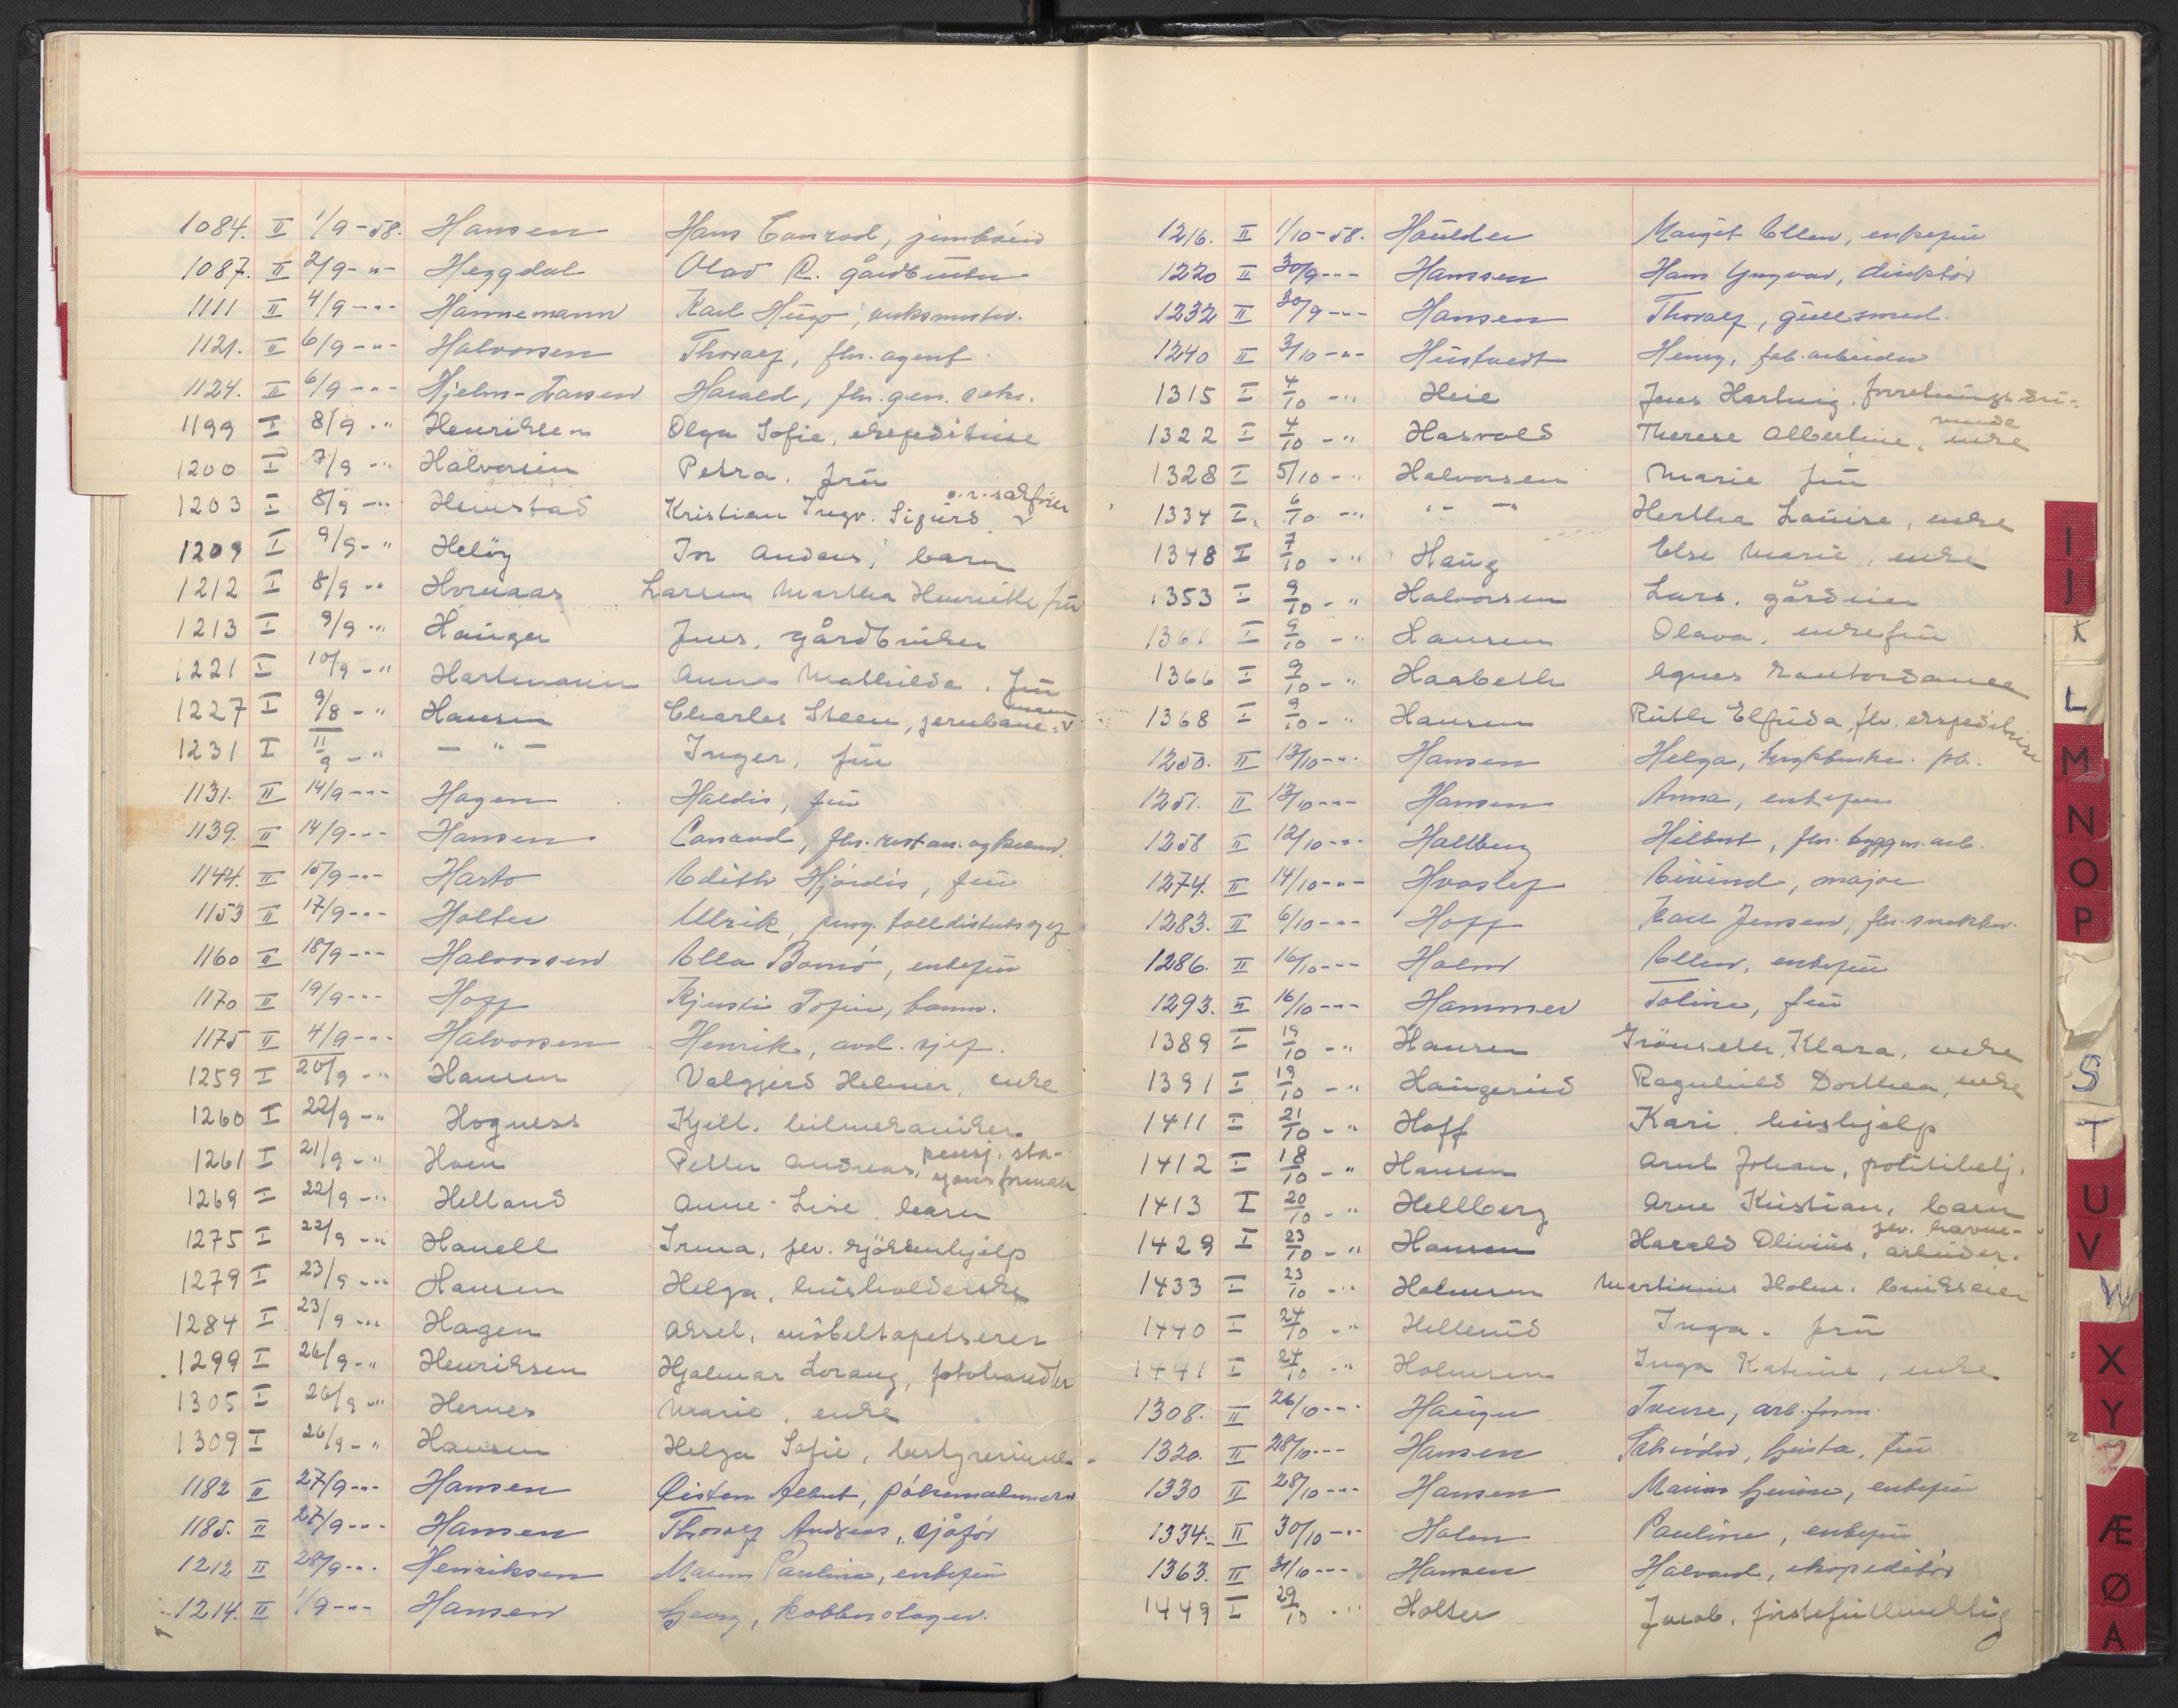 1084. II 1/9-58. Hansen Hans Conrad, jernbanev
1087. II 2/9-"- Heggdal Olav R. gårdbruker
1111 II 4/9-"- Hannemann Karl Hugo, verksmester.
1121. II 6/9-"- Halvorsen Thoralf, fhv. agent.
1124. II 6/9-"- Hjelm-Larsen Harald, fhv. gen. sekr.
1199 I 8/9 -" Henriksen Olga Sofie, ekspeditrise
1200 I 7/9 -" Halvorsen Petra. fru
1203 I 8/9 -" Kristian Ingv. Sigurd o.r.sakfører
1209 I 9/9-" Heløy Tor Anders, barn
1212 I 8/9 -" Hornaas Larsen Martha Henriette fru
1213 I 9/9 -" Hauger Jens, gårdbruker
1221 I 10/9 -" Hartmann Anna Mathilde. fru
1227 I 9/8 -" Hansen Charles Steen, jernbane-
mann
1231 I 11/9 -" - " - Inger, fru
1131. II 14/9-"- Hagen Haldis, fru
1139. II 14/9-"- Hansen Conrad, fhv.
1144. II 15/9-"- Harto Edith Hjørdis, fru
1153 II 17/9-"- Holter Ulrik, pens. tolldistriktssjef
1160 II 18/9-"- Halvorsen Ella enkefru
1170 II 19/9-"- Hoff Kjersti Tofin, barn.
1175 II 4/9-"- Halvorsen Henrik, avd. sjef.
1259 I 20/9 -" Hansen Valgjerd Helmer, enke
1260 I 22/9 -" Hogness Kjell. bilmekaniker
1261 I 21/9 -" Hoen Petter Andreas, pensj. sta-
sjonsformann
1269 I 22/9 -" Helland Anne-Lise. barn
1275 I 22/9 -" Hanell Irma, fhv. kjøkkenhjelp
1279 I 23/9 -" Hansen Helga. husholderske
1284 I 23/9 -" Hagen Aksel, møbeltapetserer
1299 I 26/9-" Henriksen Hjalmar Lorang, fotohandler
1305 I 26/9 -" Hernes Marie, enke
1309 I 26/9-" Hansen Helga Sofie, bestyrerinne
1182 II 27/9-"- Hansen Øistein Albert, pølsemaker
1185. II 27/9-"- Hansen Thoralf Andreas, sjåfør
1212 II 28/9-"- Henriksen Maren Pauline, enkefru
1214. II 1/9-"- Hansen Georg, kobberslager.
1216. II 1/10-58. Houlder Margit Ellen, enkefru
1220 II 30/9-"- Hanssen Hans Yngvar, direktør
1232 II 30/9-"- Hansen Thoralf, gullsmed.
1240 II 3/10-"- Hustvedt Henry, fab. arbeider
1315 I 4/10 -" Heie Jens Hartvig. forretningsdri-
vende
1322 I 4/10 -" Hasvold Therese Albertine, enke
1328 I 5/10 -" Halvorsen Marie fru
1334 I. 6/10 -" "- -" Hertha Louise, enke
1348 I 7/10 -" Haug Else Marie, enke
1353 I 9/10 -" Halvorsen Lars. gårdeier
1361 I 9/10 -" Hansen Olava. enkefru
1366 I 9/10 -" Haabeth Agnes kontordame
1368 I 9/10 -" Hansen Ruth Elfrida, fhv. ekspeditrise
1250. II 13/10-"- Hansen Helga,
1251. II 13/10-"- Hansen Anna, enkefru
1258 II 12/10-"- Hallberg Hilbert, fhv. byggn.arb.
1274. II 14/10-"- Hvoslef Eivind, major
1283. II 6/10-"- Hoff Karl Jensen, fhv. snekker.
1286. II 16/10-"- Holm Ellen, enkefru
1293. II 16/10-"- Hammer Toline, fru
1389 I 19/10 -" Hansen Klara, enke
1391 I 19/10 -" Haugerud Ragnhild Dorthea, enke
1411 I 21/10 -" Hoff Kari. hushjelp
1412 I 18/10 -" Hansen Arnt Johan, politibetj.
1413 I 20/10 -" Hellberg Arne Kristian, barn
1429 I 23/10 -" Hansen Harald Olivius, fhv. havne-
arbeider.
1433 I 23/10 -" Holmsen Martinius Holm. brukseier
1440 I 24/10 -" Hellerud Inga. fru
1441 I 24/10 -" Holmsen Inga Katrine, enke
1308. II 26/10-"- Haugen Sverre, arb. form.
1320. II 28/10-"- Hansen Schrøder, Gusta, fru
1330 II 28/10-"- Hansen enkefru
1334. II 30/10-"- Holen Pauline, enkefru
1363. II 31/10-"- Hansen Halvard, ekspeditør
1449 I 29/10 -" Holter Jacob. førstefullmektig
I
J
K
L
M
N
O
P
S
T
U
V
W
X
Y
Z
Æ
Ø
A